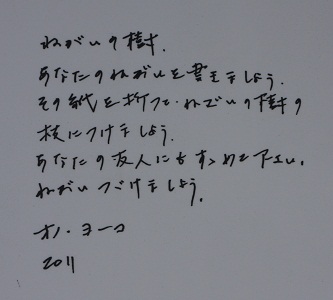 ねがいの樹.
あなたのねがいを書きましょう.
その紙を折って、ねがいの樹の
枝につけましょう.
あなたの友人にもすすめて下さい.
ねがいつづけましょう.
オノ・ヨーコ
2011